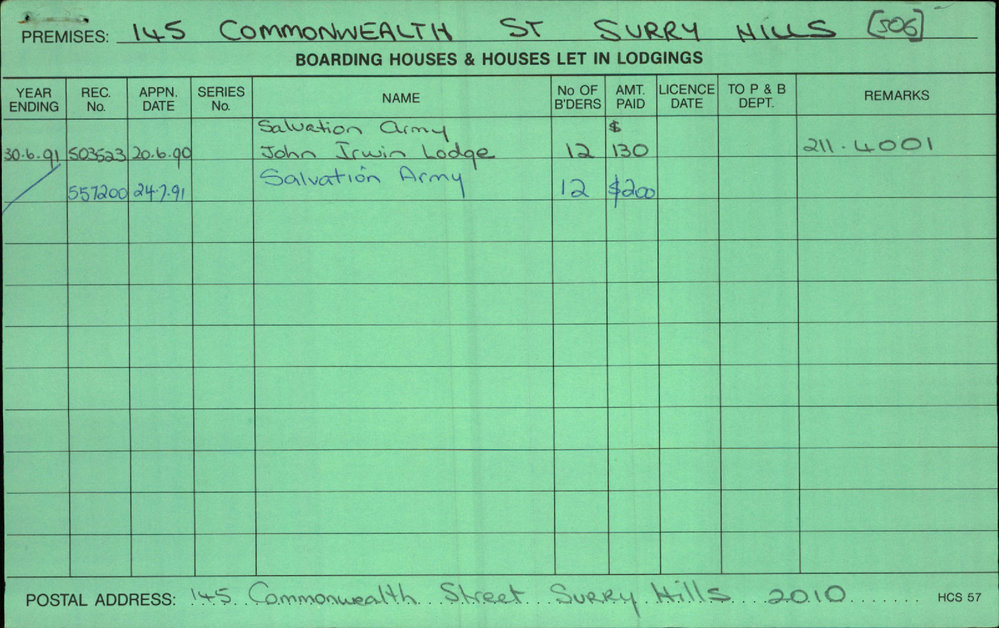 PREMISES: 145 COMMONWEALTH ST SURRY HILLS [506]
BOARDING HOUSES & HOUSES LET IN LODGINGS
YEAR ENDING REC. No. APPN. DATE SERIES No. NAME No OF B'DERS AMT. PAID LICENCE DATE TO P & B DEPT. REMARKS
Salvation Army $
30.6.91 503523 20.6.90 John Irwin Lodge 12 130 211.4001
557200 24.7.91 Salvation Army 12 $200
POSTAL ADDRESS: 145 Commonwealth Street Surry Hills 2010 HCS 57